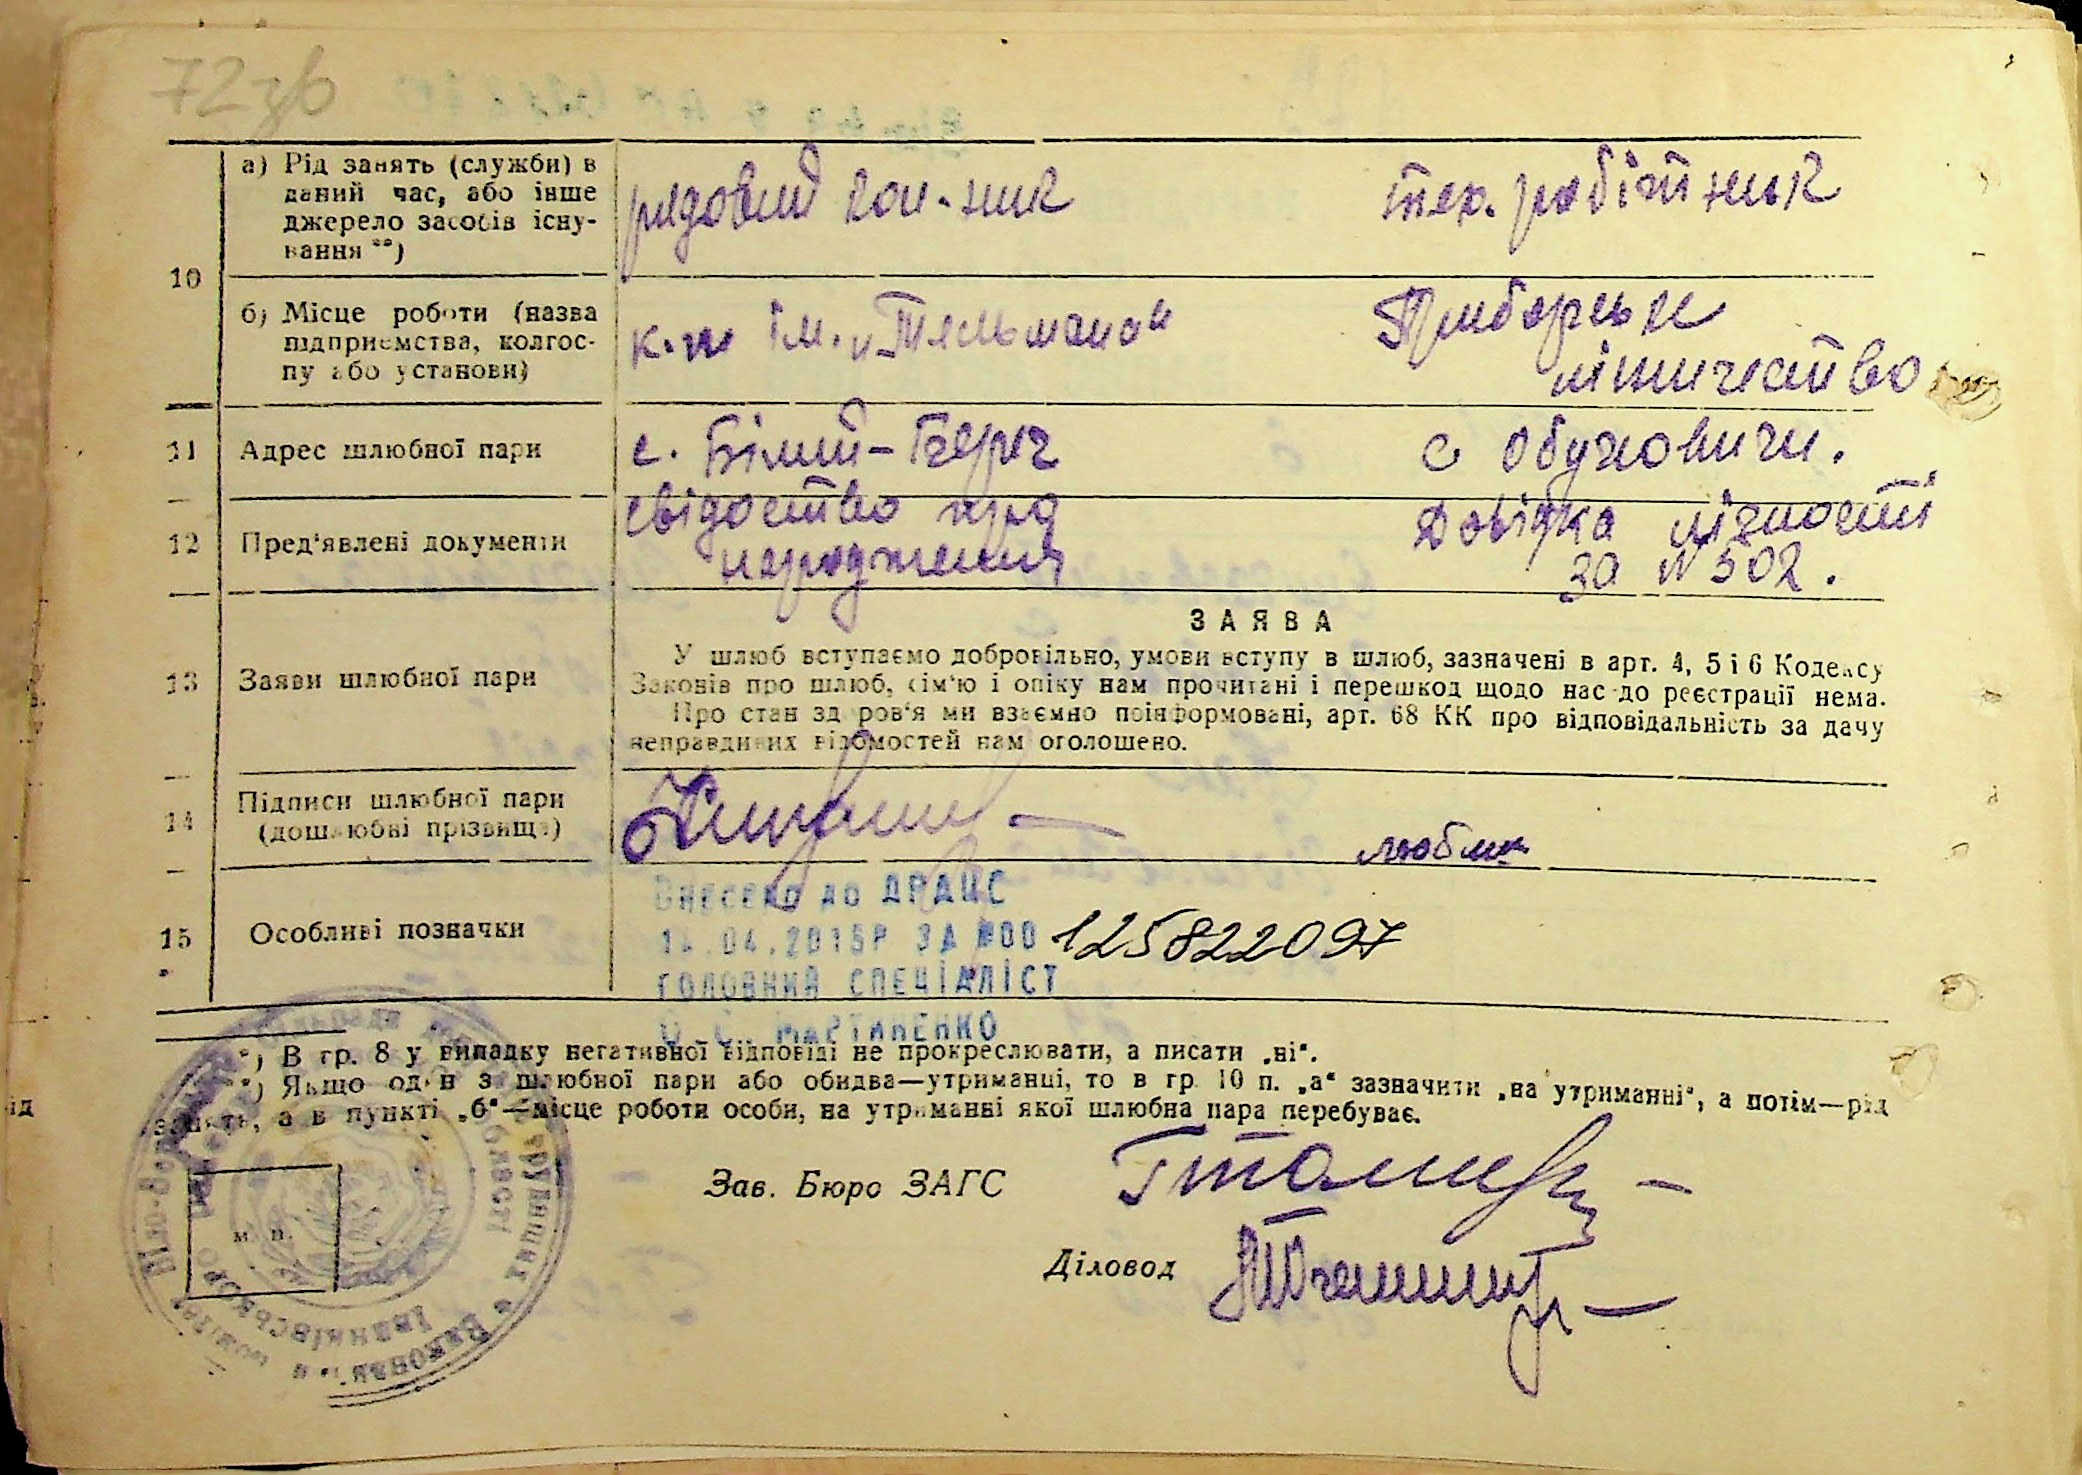 72 зв
а) Рід занять (служби) в
даний час, або інше
джерело засобів існу-
вання **)
рядовий кол-ник
тех. робітник
10
б) Місце роботи (назва
підприємства, колгос-
пу або установи)
к-п ім. „Тельмана"
Приборське
лісничество
11
Адрес шлюбної пари
с. Білий-Берег
с Обуховичи.
12
Пред'явлені документи
свідоство про
народження
Довідка лічності
за №502.
13
Заяви шлюбної пари
ЗАЯВА
У шлюб вступаємо добровільно, умови вступу в шлюб, зазначені в арт. 4, 5 і 6 Кодексу
Законів про шлюб, сім'ю і опіку нам прочитані і перешкод щодо нас до реєстрації нема.
Про стан здоров'я ми взаємно поінформовані, арт. 68 КК про відповідальність за дачу
неправдивих відомостей нам оголошено.
14
Підписи шлюбної пари
(дошлюбні прізвища)
15
Особливі позначки
Внесено до ДРАЦС
14.04.2015Р ЗА №00 125822097
ГОЛОВНИЙ СПЕЦІАЛІСТ
О.С. МАРТИНЕНКО
*) В гр. 8 у випадку негативної відповіді не прокреслювати, а писати „ні".
**) Якщо один з шлюбної пари або обидва—утриманці, то в гр. 10 п. „а" зазначити „на утриманні", а потім—рід
занять, а в пункті „б"—місце роботи особи, на утриманні якої шлюбна пара перебуває.
Зав. Бюро ЗАГС
м. п.
Діловод